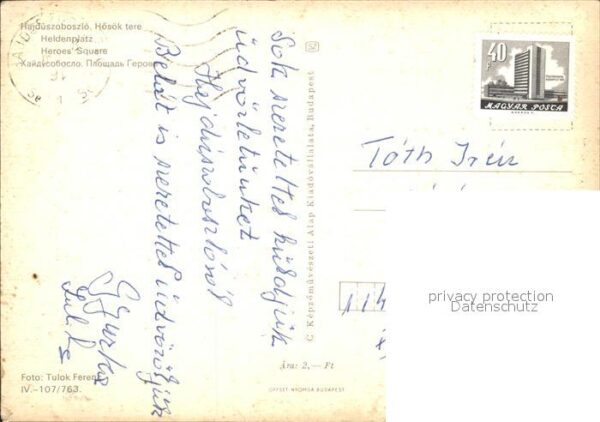 Hajdúszoboszló. Hősök tere
Heldenplatz
Heroes' Square
Хайдусобосло. Площадь Герое
Sok szeretettel küldjük
üdvözletünket
Hajdúszoboszlóról
Belut is szeretettel üdvözöljük
Gyurka
Foto: Tulok Ferenc
IV.-107/763.
C Képzőművészeti Alap Kiadóvállalata, Budapest
Ára: 2,— Ft
OFFSET-NYOMDA BUDAPEST
40
MAGYAR POSTA
Tóth Irén
114
privacy protection
Datenschutz